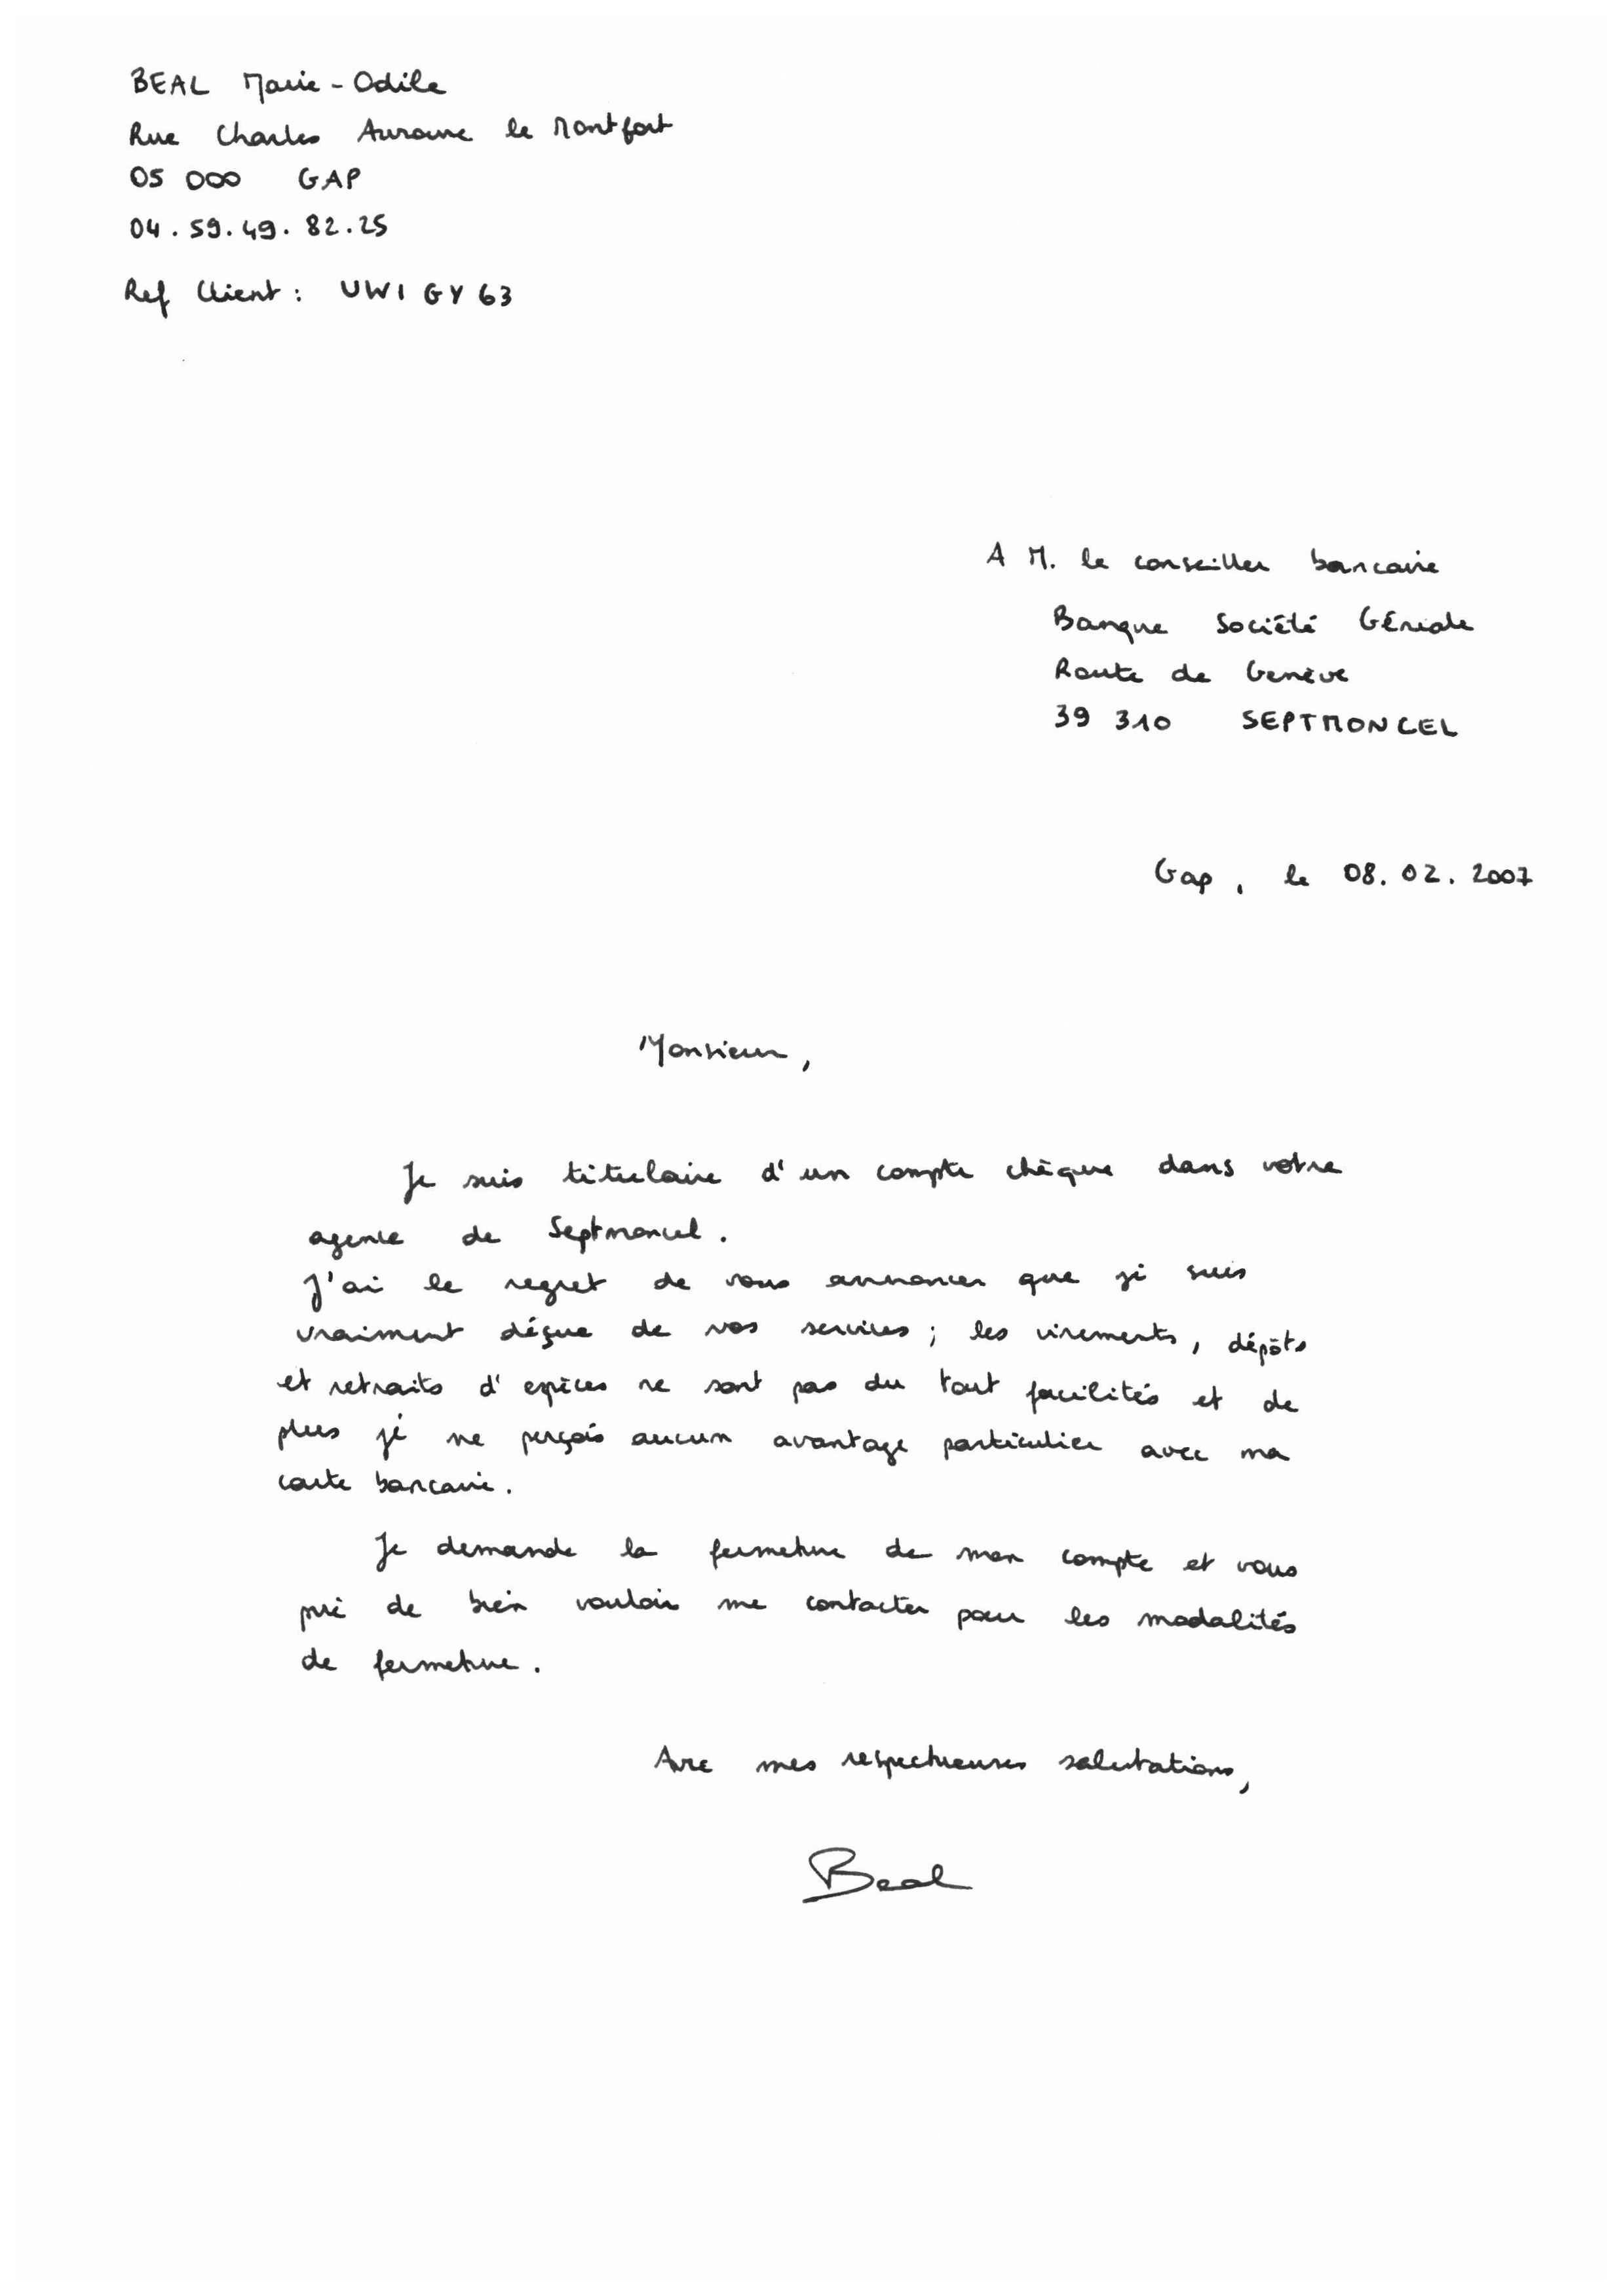 BEAL Marie-Odile
Rue Charles Aurouze le Montfort
05 000 GAP
04.59.49.82.25
Ref Client : UWIGY63
A M. le conseiller bancaire
Banque Société Générale
Route de Genève
39 310 SEPTMONCEL
Gap, le 08.02.2007
Monsieur,
Je suis titulaire d'un compte chèque dans votre
agence de Septmoncel.
J'ai le regret de vous annoncer que je suis
vraiment déçue de vos services ; les virements, dépôts
et retraits d'espèces ne sont pas du tout facilités et de
plus je ne perçois aucun avantage particulier avec ma
carte bancaire.
Je demande la fermeture de mon compte et vous
prie de bien vouloir me contacter pour les modalités
de fermeture.
Avec mes respectueuses salutations,
Beal